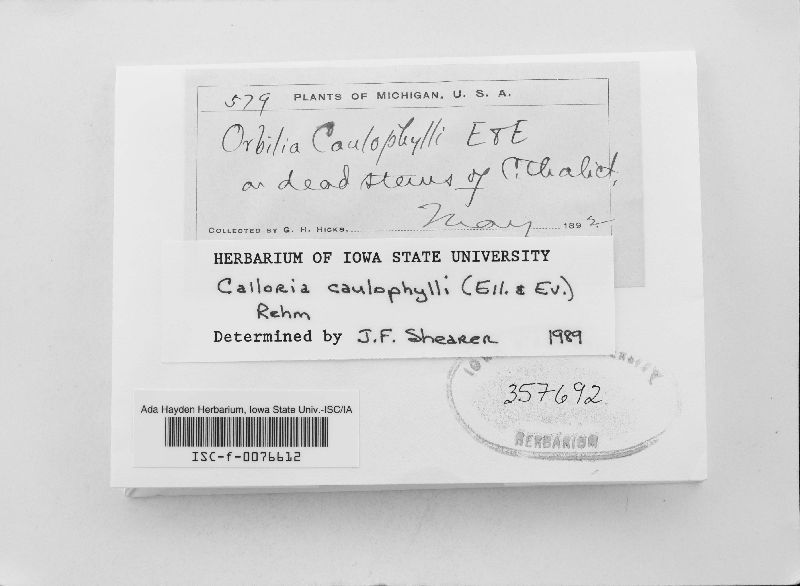 579 PLANTS OF MICHIGAN, U. S. A.
Orbilia Caulophylli E & E
on dead stems of C. thalict.
May 1892
COLLECTED BY G. H. HICKS,
HERBARIUM OF IOWA STATE UNIVERSITY
Calloria caulophylli (Ell. & Ev.)
Rehm
Determined by J.F. Shearer 1989
357692
HERBARIUM
Ada Hayden Herbarium, Iowa State Univ.-ISC/IA
ISC-f-0076612